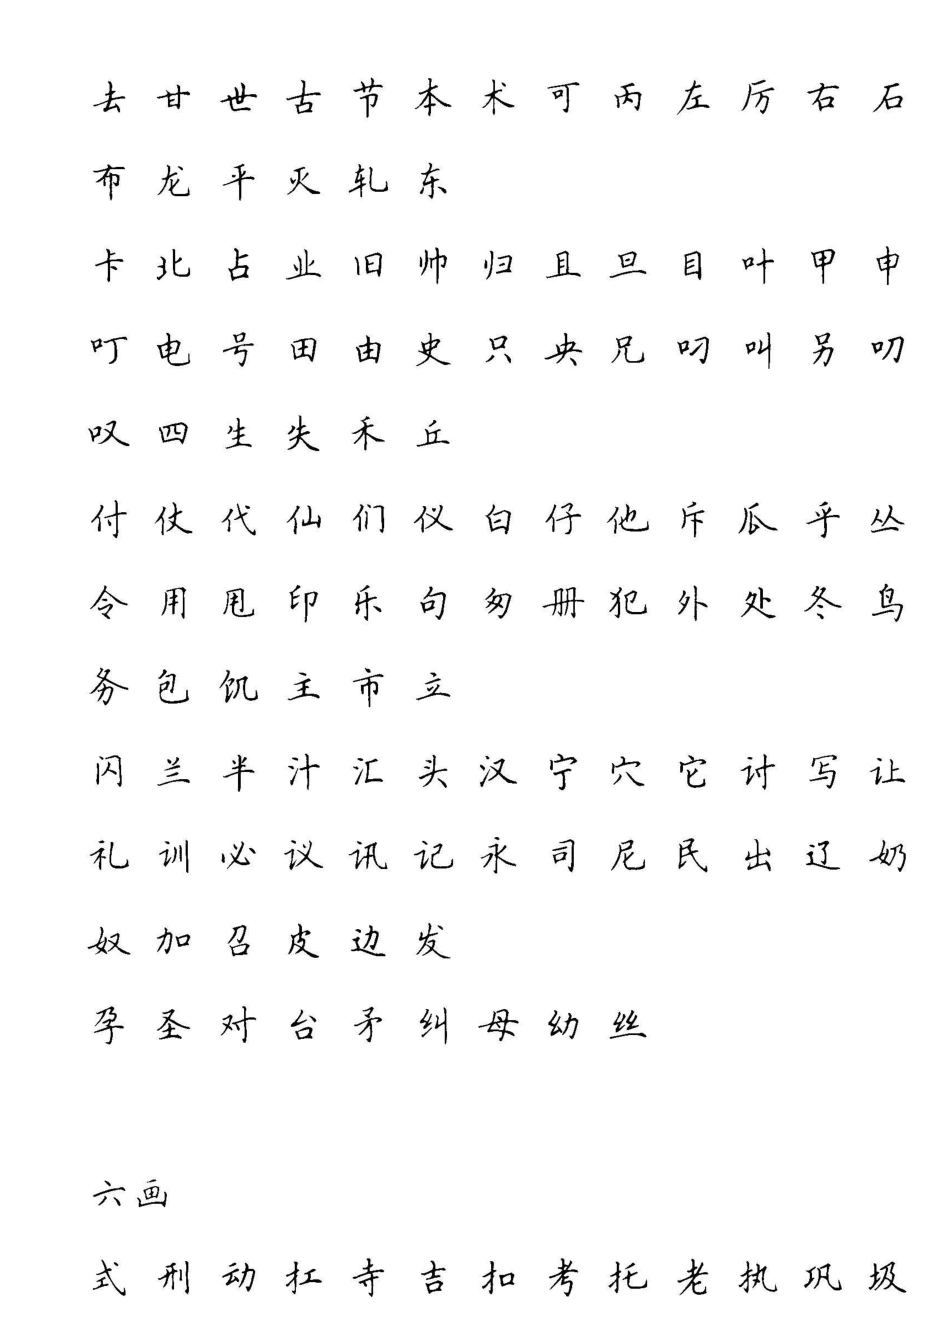 去 甘 世 古 节 本 术 可 丙 左 厉 右 石
布 龙 平 灭 轧 东
卡 北 占 业 旧 帅 归 且 旦 目 叶 甲 申
叮 电 号 田 由 史 只 央 兄 叼 叫 另 叨
叹 四 生 失 禾 丘
付 仗 代 仙 们 仪 白 仔 他 斥 瓜 乎 丛
令 用 甩 印 乐 句 匆 册 犯 外 处 冬 鸟
务 包 饥 主 市 立
闪 兰 半 汁 汇 头 汉 宁 穴 它 讨 写 让
礼 训 必 议 讯 记 永 司 尼 民 出 辽 奶
奴 加 召 皮 边 发
孕 圣 对 台 矛 纠 母 幼 丝
六画
式 刑 动 扛 寺 吉 扣 考 托 老 执 巩 圾